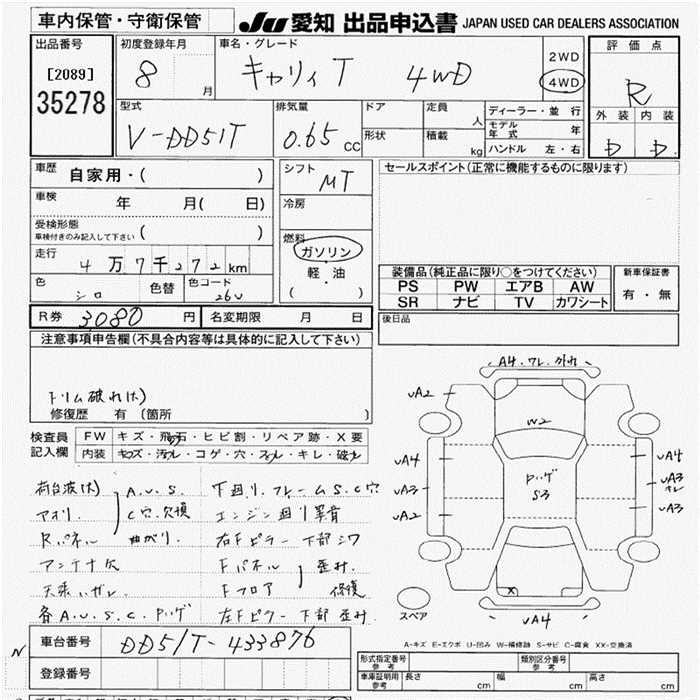 車内保管・守衛保管
JU 愛知 出品申込書 JAPAN USED CAR DEALERS ASSOCIATION
出品番号 初度登録年月 車名・グレード 評価点
[2089] 8 月 キャリィ T 4WD 2WD 4WD R
35278
型式 排気量 ドア 定員 人 ディーラー・並行 外装 内装
V-DD51T 0.65 cc 形状 積載 kg モデル年式 年 D D
ハンドル 左・右
車歴 自家用・( ) シフト MT セールスポイント(正常に機能するものに限ります)
車検 年 月( 日) 冷房
受検形態 ( )
車検付きのみ記入して下さい
燃料 ガソリン
走行 4万7千272km 軽・油
( )
装備品(純正品に限り○をつけてください) 新車保証書
色 シロ 色替 色コード 26U
PS PW エアB AW 有・無
SR ナビ TV カワシート
R券 3,080 円 名変期限 月 日 後日品
注意事項申告欄(不具合内容等は具体的に記入して下さい)
トリム破れ(大)
修復歴 有(箇所 )
検査員 FW キズ・飛石・ヒビ割・リペア跡・X要
記入欄 内装 キズ・汚れ・コゲ・穴・スレ・キレ・破れ
荷台波(大) A.U.S. 下廻り、フレームS.C穴
アオリ C穴、欠損 エンジン廻り
Rパネル 曲がり. 右Fピラー下部シワ
アンテナ欠 Fパネル 歪み.
天張りハガレ Fフロア
各A.U.S.C.P.ハゲ 左Fピラー下部歪み.
A4.ワレ.外れ
UA2
W2
UA4
UA3
UA2
Pハゲ
S3
UA4
UA3
キレ
UA3
X
UA4
スペア
N 車台番号 DD51T-433876
登録番号
A-キズ E-エクボ U-凹み W-補修跡 S-サビ C-腐食 XX-交換済
形式指定番号 参考 類別区分番号 参考
車庫証明用 参考 長さ cm 幅 cm 高さ cm